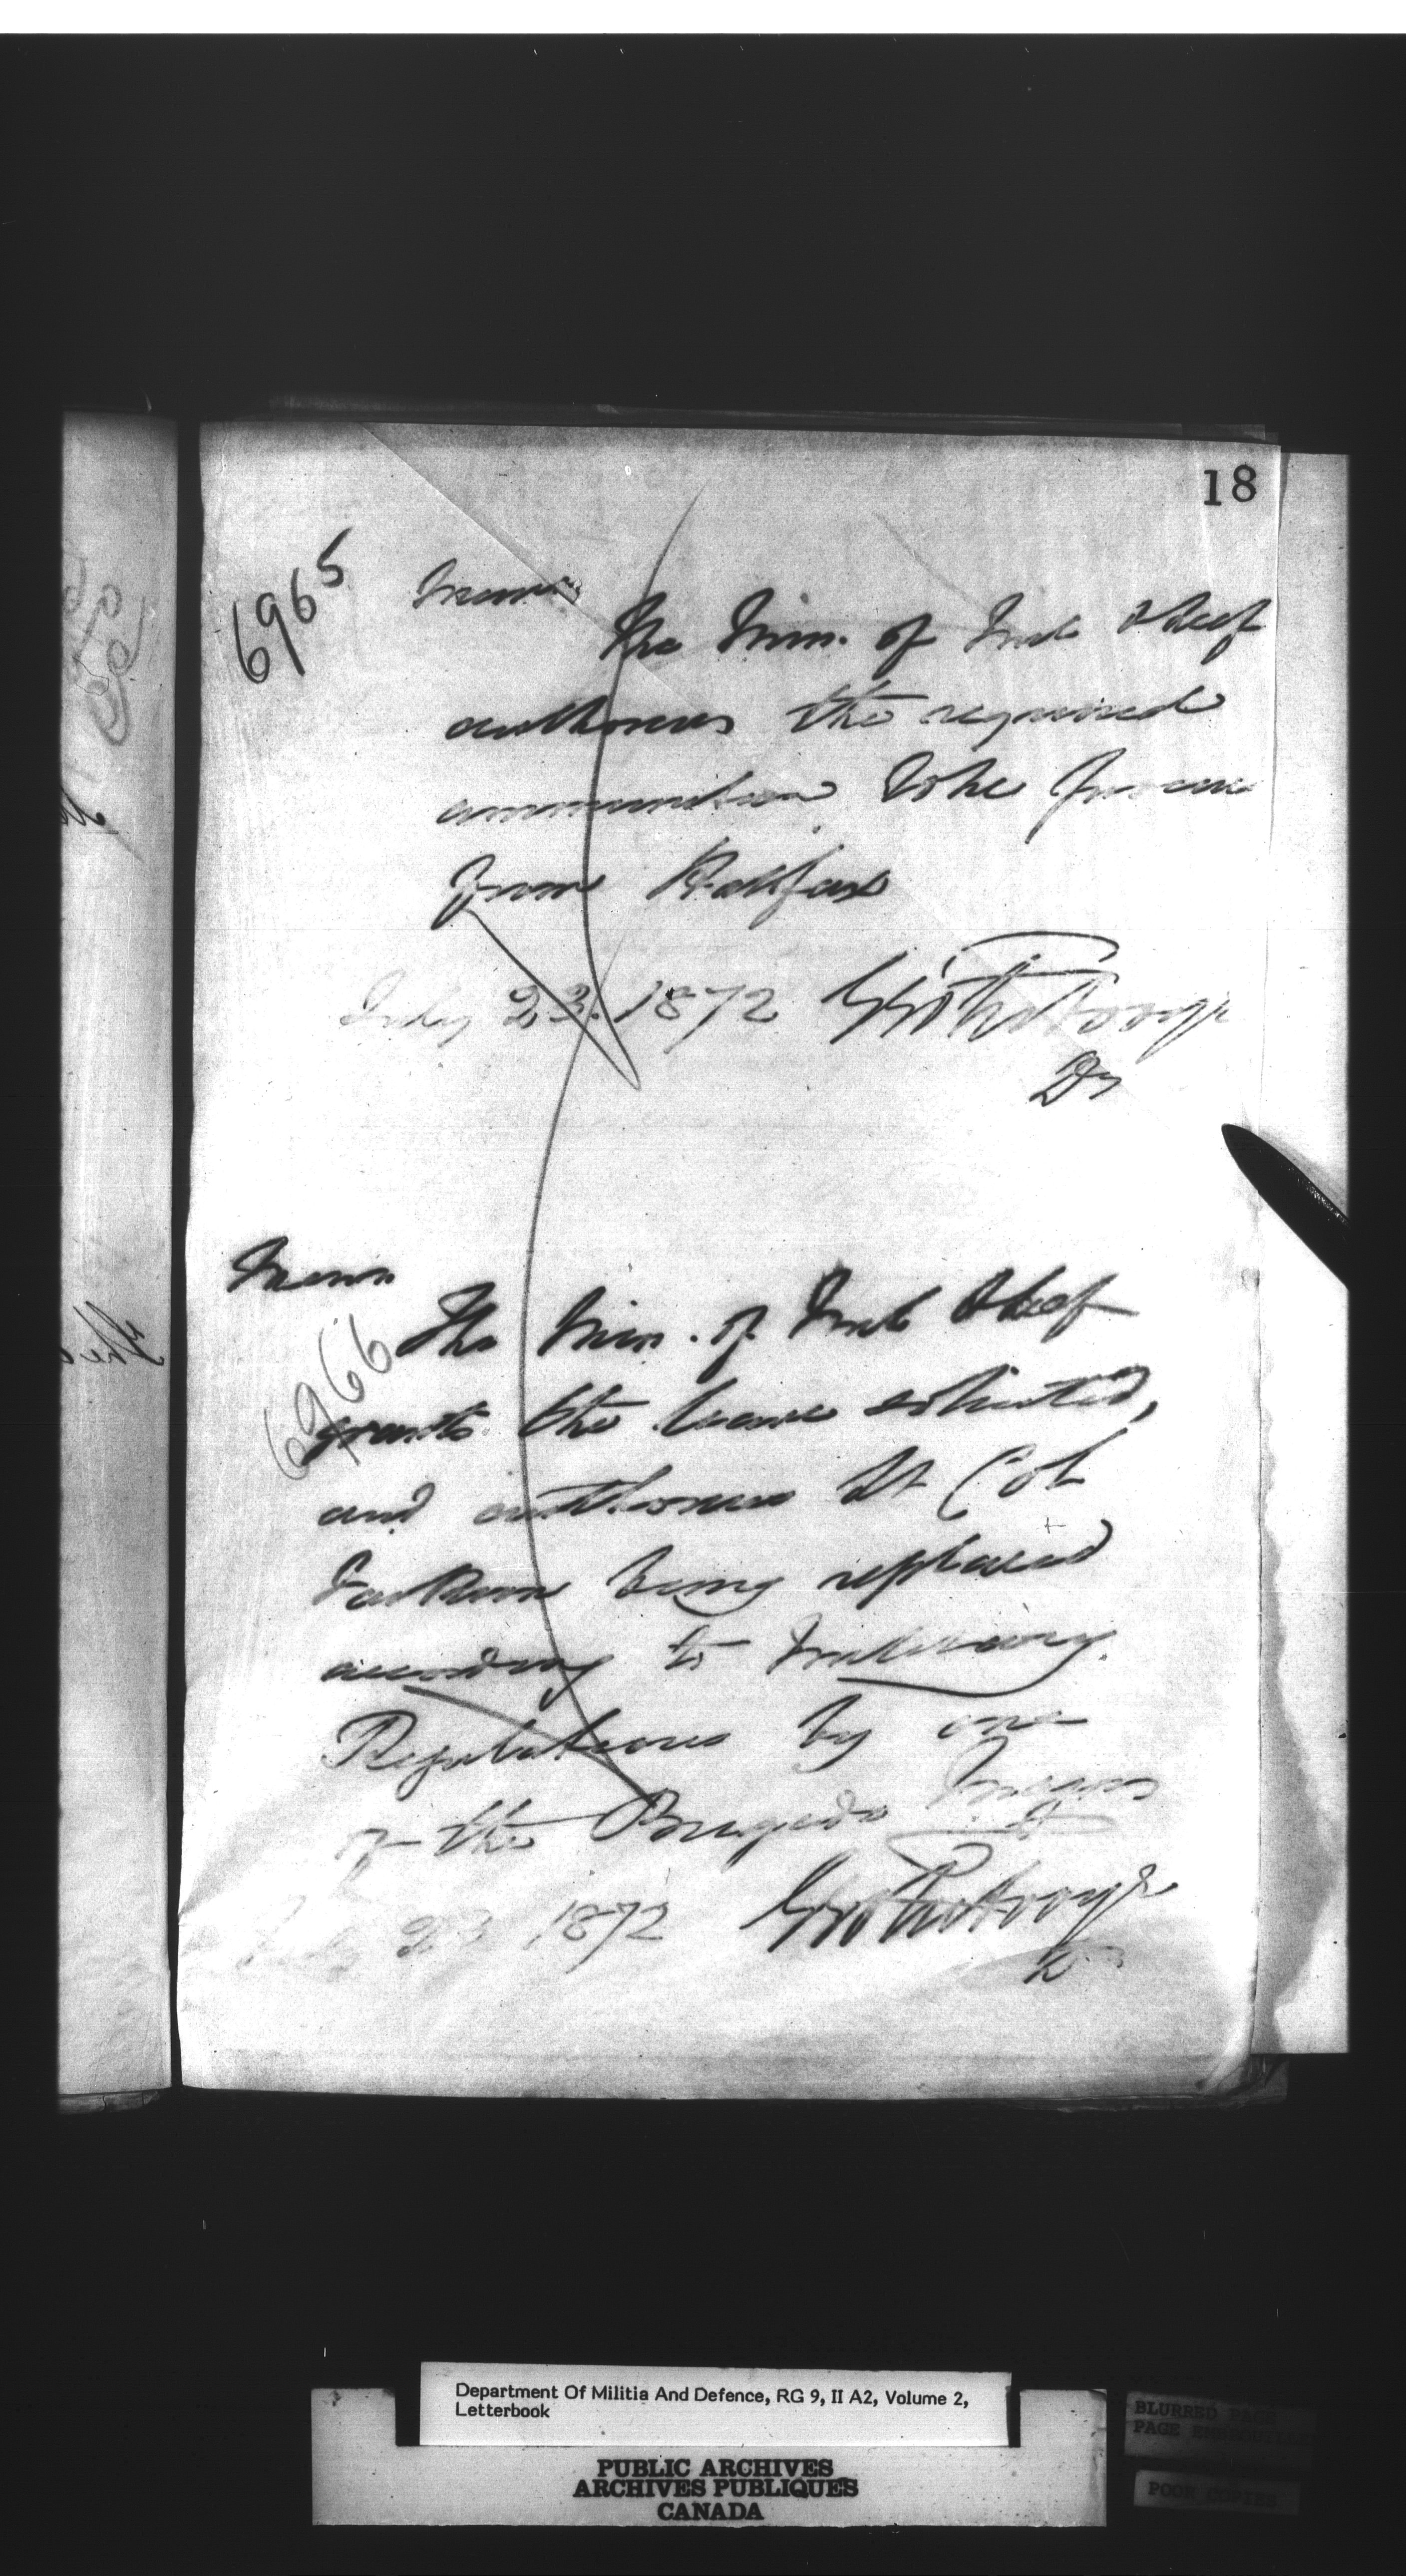 18
6965
Memo
The Min. of Mil & Def
authorises the required
ammunition to be
from Halifax
July 23. 1872
Memo
6966
The Min. of Mil & Def
grants the leave solicited,
and authorises Lt Col
Jackson being replaced
according to Military
Regulations by one
of the Brigade Majors
July 23 1872
Department Of Militia And Defence, RG 9, II A2, Volume 2,
Letterbook
PUBLIC ARCHIVES
ARCHIVES PUBLIQUES
CANADA
BLURRED PAGE
PAGE EMBROUILLEE
POOR COPIES